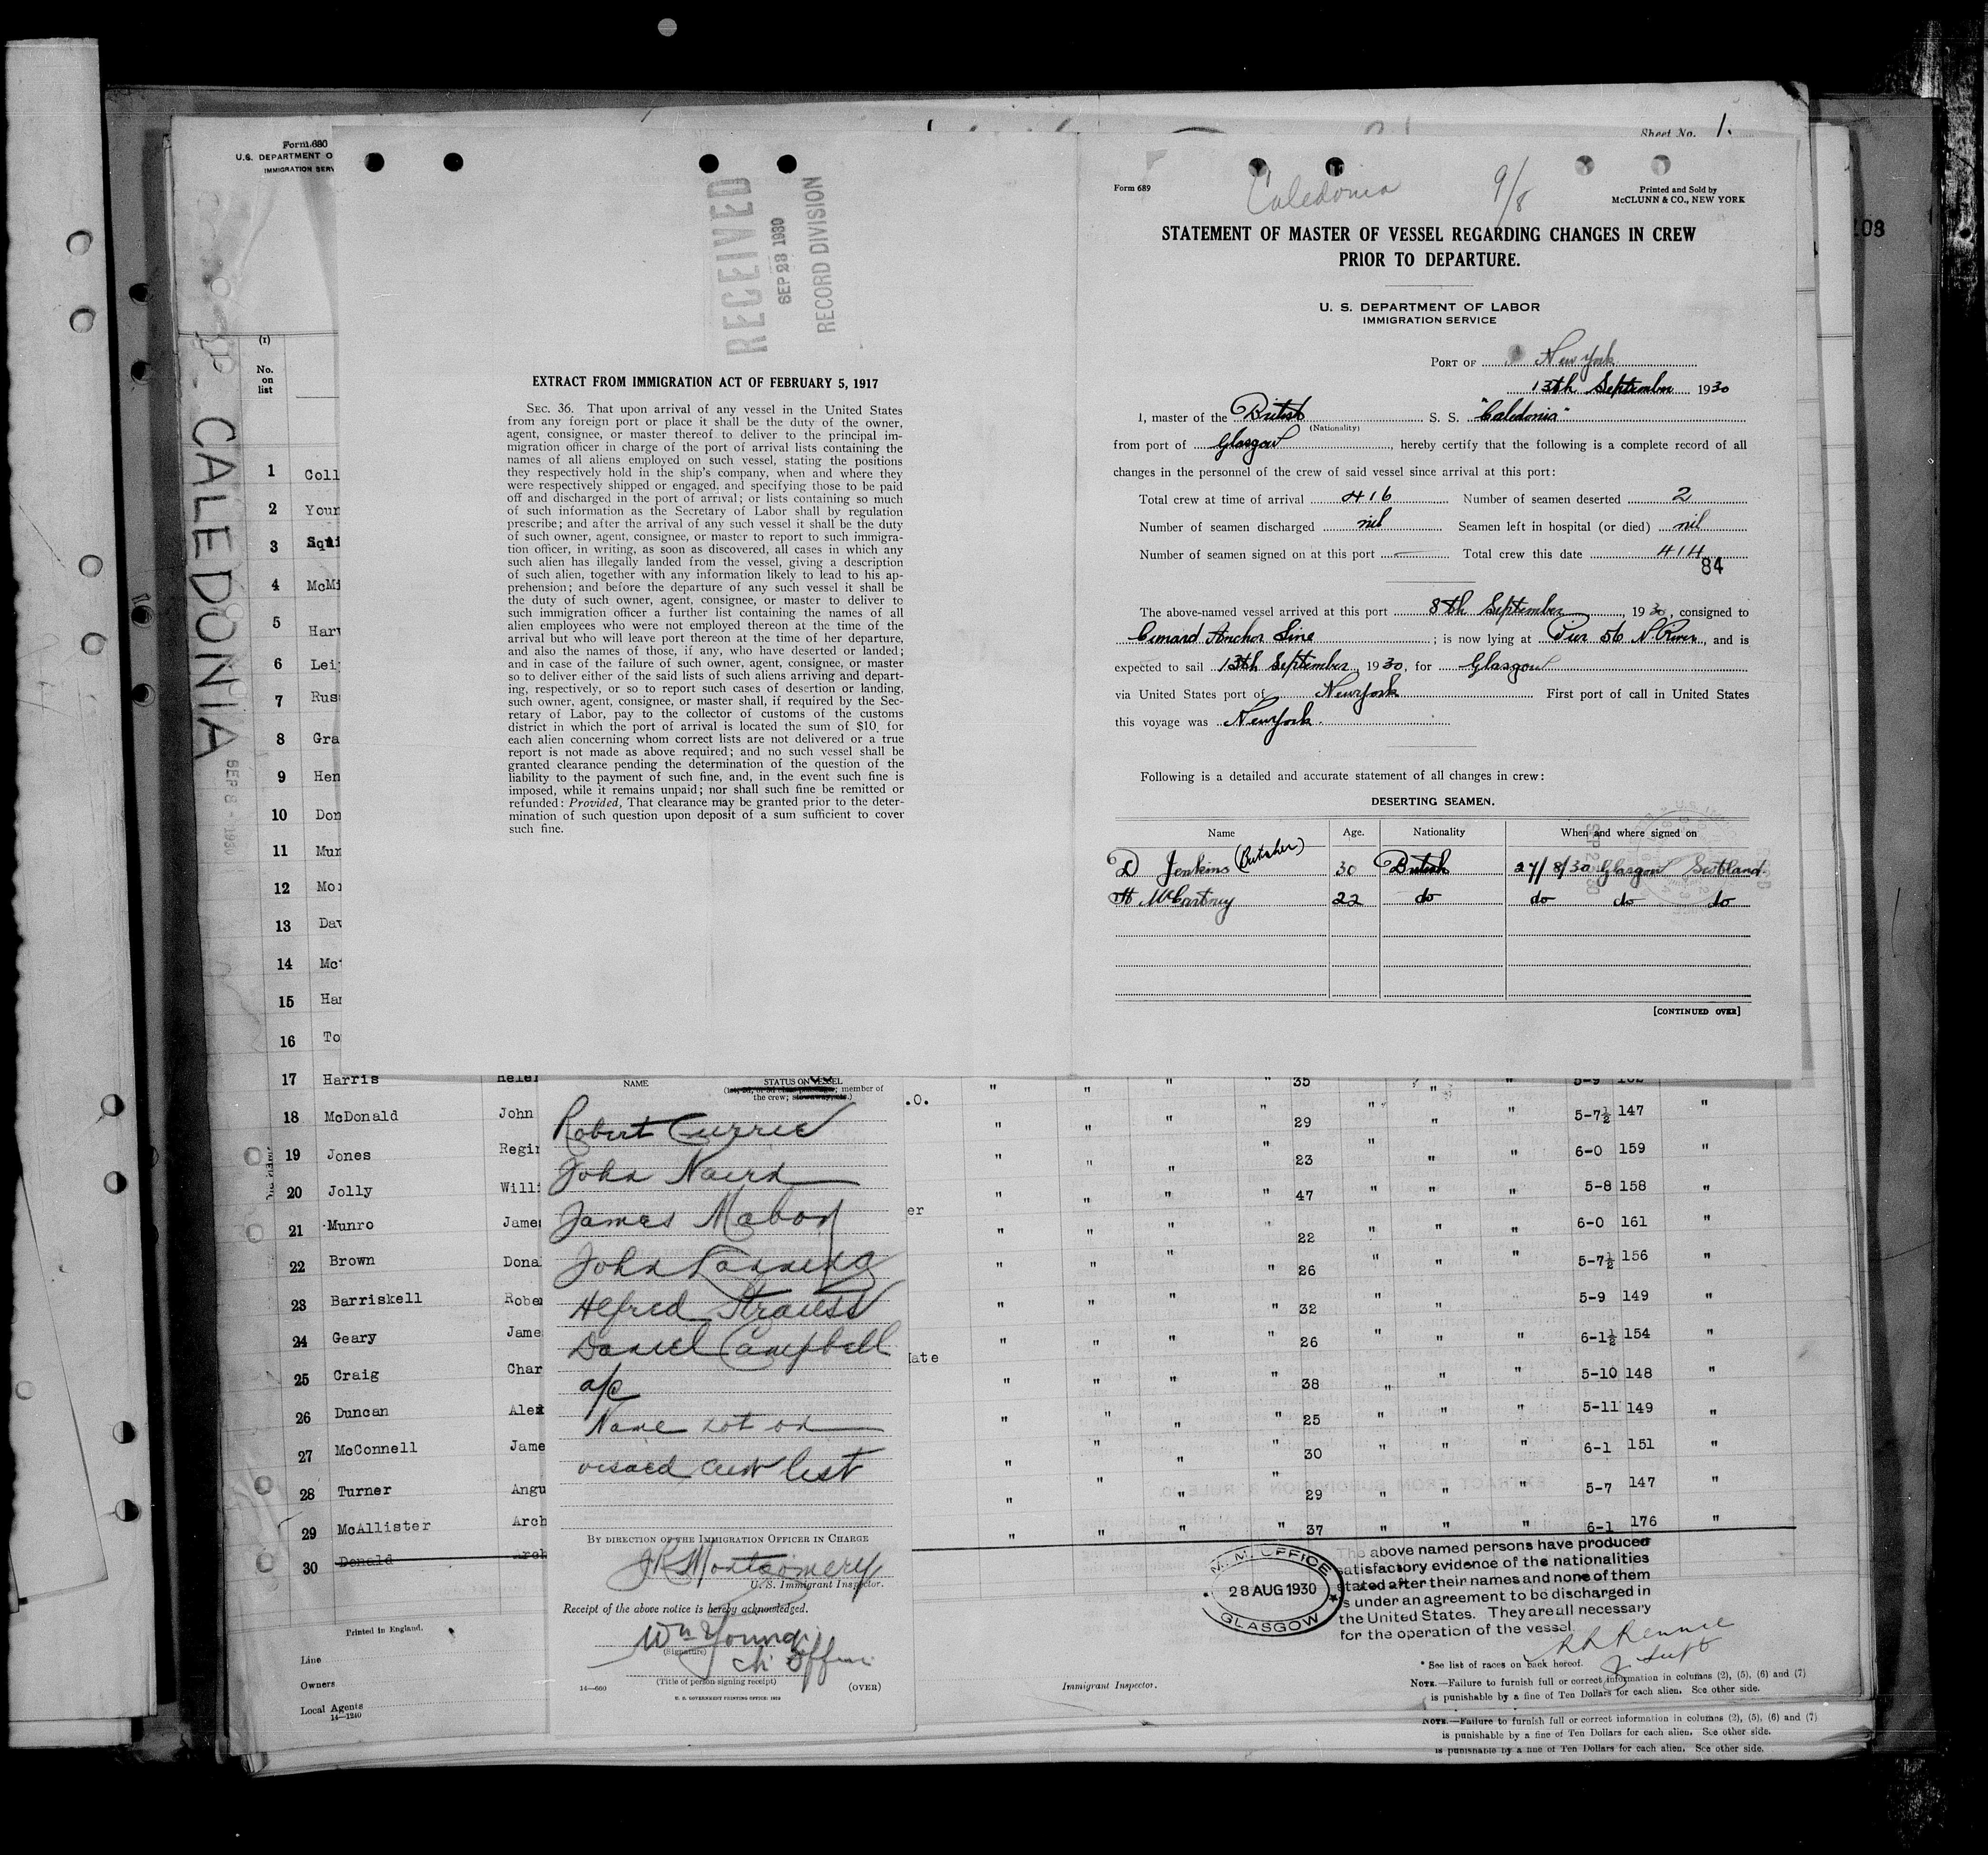 Sheet No. 1.
Form 680
U.S. DEPARTMENT O
IMMIGRATION SERV
108
RECEIVED
SEP 23 1930
RECORD DIVISION
EXTRACT FROM IMMIGRATION ACT OF FEBRUARY 5, 1917
SEC. 36. That upon arrival of any vessel in the United States
from any foreign port or place it shall be the duty of the owner,
agent, consignee, or master thereof to deliver to the principal im-
migration officer in charge of the port of arrival lists containing the
names of all aliens employed on such vessel, stating the positions
they respectively hold in the ship's company, when and where they
were respectively shipped or engaged, and specifying those to be paid
off and discharged in the port of arrival; or lists containing so much
of such information as the Secretary of Labor shall by regulation
prescribe; and after the arrival of any such vessel it shall be the duty
of such owner, agent, consignee, or master to report to such immigra-
tion officer, in writing, as soon as discovered, all cases in which any
such alien has illegally landed from the vessel, giving a description
of such alien, together with any information likely to lead to his ap-
prehension; and before the departure of any such vessel it shall be
the duty of such owner, agent, consignee, or master to deliver to
such immigration officer a further list containing the names of all
alien employees who were not employed thereon at the time of the
arrival but who will leave port thereon at the time of her departure,
and also the names of those, if any, who have deserted or landed;
and in case of the failure of such owner, agent, consignee, or master
so to deliver either of the said lists of such aliens arriving and depart-
ing, respectively, or so to report such cases of desertion or landing,
such owner, agent, consignee, or master shall, if required by the Sec-
retary of Labor, pay to the collector of customs of the customs
district in which the port of arrival is located the sum of $10 for
each alien concerning whom correct lists are not delivered or a true
report is not made as above required; and no such vessel shall be
granted clearance pending the determination of the question of the
liability to the payment of such fine, and, in the event such fine is
imposed, while it remains unpaid; nor shall such fine be remitted or
refunded: Provided, That clearance may be granted prior to the deter-
mination of such question upon deposit of a sum sufficient to cover
such fine.
Form 689
Caledonia 9/8
Printed and Sold by
McCLUNN & CO., NEW YORK
STATEMENT OF MASTER OF VESSEL REGARDING CHANGES IN CREW
PRIOR TO DEPARTURE.
U. S. DEPARTMENT OF LABOR
IMMIGRATION SERVICE
PORT OF New York
13th September 1930
I, master of the British S. S. "Caledonia"
(Nationality)
from port of Glasgow, hereby certify that the following is a complete record of all
changes in the personnel of the crew of said vessel since arrival at this port:
Total crew at time of arrival 416 Number of seamen deserted 2
Number of seamen discharged nil Seamen left in hospital (or died) nil
Number of seamen signed on at this port — Total crew this date 414
84
The above-named vessel arrived at this port 8th September, 1930, consigned to
Cunard Anchor Line; is now lying at Pier 56 N. River, and is
expected to sail 13th September, 1930, for Glasgow
via United States port of New York First port of call in United States
this voyage was New York.
Following is a detailed and accurate statement of all changes in crew:
DESERTING SEAMEN.
Name Age. Nationality When and where signed on
D Jenkins (Butcher) 30 British 27/8/30 Glasgow Scotland
H McCartney 22 do do do do
[CONTINUED OVER]
CALEDONIA
SEP 8 - 1930
(1)
No.
on
list
1 Coll
2 Your
3 Squi
4 McMi
5 Harv
6 Lei
7 Rus
8 Gra
9 Hen
10 Don
11 Mur
12 Mo
13 Dav
14 Mc
15 Har
16 To
17 Harris Helen " " " " 35 " " 5-9
18 McDonald John .O. " " " " 29 " " " 5-7½ 147 "
19 Jones Regin " " " " 23 " " " 6-0 159 "
20 Jolly Willi " " " " 47 " " " 5-8 158 "
21 Munro Jame er " " " " 22 " " " 6-0 161 "
22 Brown Dona " " " " 26 " " " 5-7½ 156 "
23 Barriskell Rober " " " " 32 " " 5-9 149 "
24 Geary Jame " " " " 26 " " " 6-1½ 154 "
25 Craig Char ate " " " " 38 " " " 5-10 148 "
26 Duncan Alex " " " " 25 " " " 5-11 149 "
27 McConnell Jame " " " " 30 " " " 6-1 151 "
28 Turner Angu " " " " 29 " " " 5-7 147 "
29 McAllister Arch " " " " 37 " " " 6-1 176 "
30 Donald Arch
NAME STATUS ON VESSEL
(1st, 2d, or 3d class passenger; member of
the crew; stowaway, etc.)
Robert Currie
John Nairn
James Mabon
John Lanning
Alfred Strauss
Daniel Campbell
a/c
Name not on
visaed crew list
BY DIRECTION OF THE IMMIGRATION OFFICER IN CHARGE
JR Montgomery
U. S. Immigrant Inspector.
Receipt of the above notice is hereby acknowledged.
Wm Young
(Signature)
Ch Officer
(Title of person signing receipt)
14—600
(OVER)
U. S. GOVERNMENT PRINTING OFFICE: 1929
Printed in England.
Line
Owners
Local Agents
14—1240
Immigrant Inspector.
M. M. OFFICE
28 AUG 1930
GLASGOW
The above named persons have produced
satisfactory evidence of the nationalities
stated after their names and none of them
is under an agreement to be discharged in
the United States. They are all necessary
for the operation of the vessel
R R Rennie
Supt
* See list of races on back hereof.
NOTE.—Failure to furnish full or correct information in columns (2), (5), (6) and (7)
is punishable by a fine of Ten Dollars for each alien. See other side.
NOTE.—Failure to furnish full or correct information in columns (2), (5), (6) and (7)
is punishable by a fine of Ten Dollars for each alien. See other side.
is punishable by a fine of Ten Dollars for each alien. See other side.